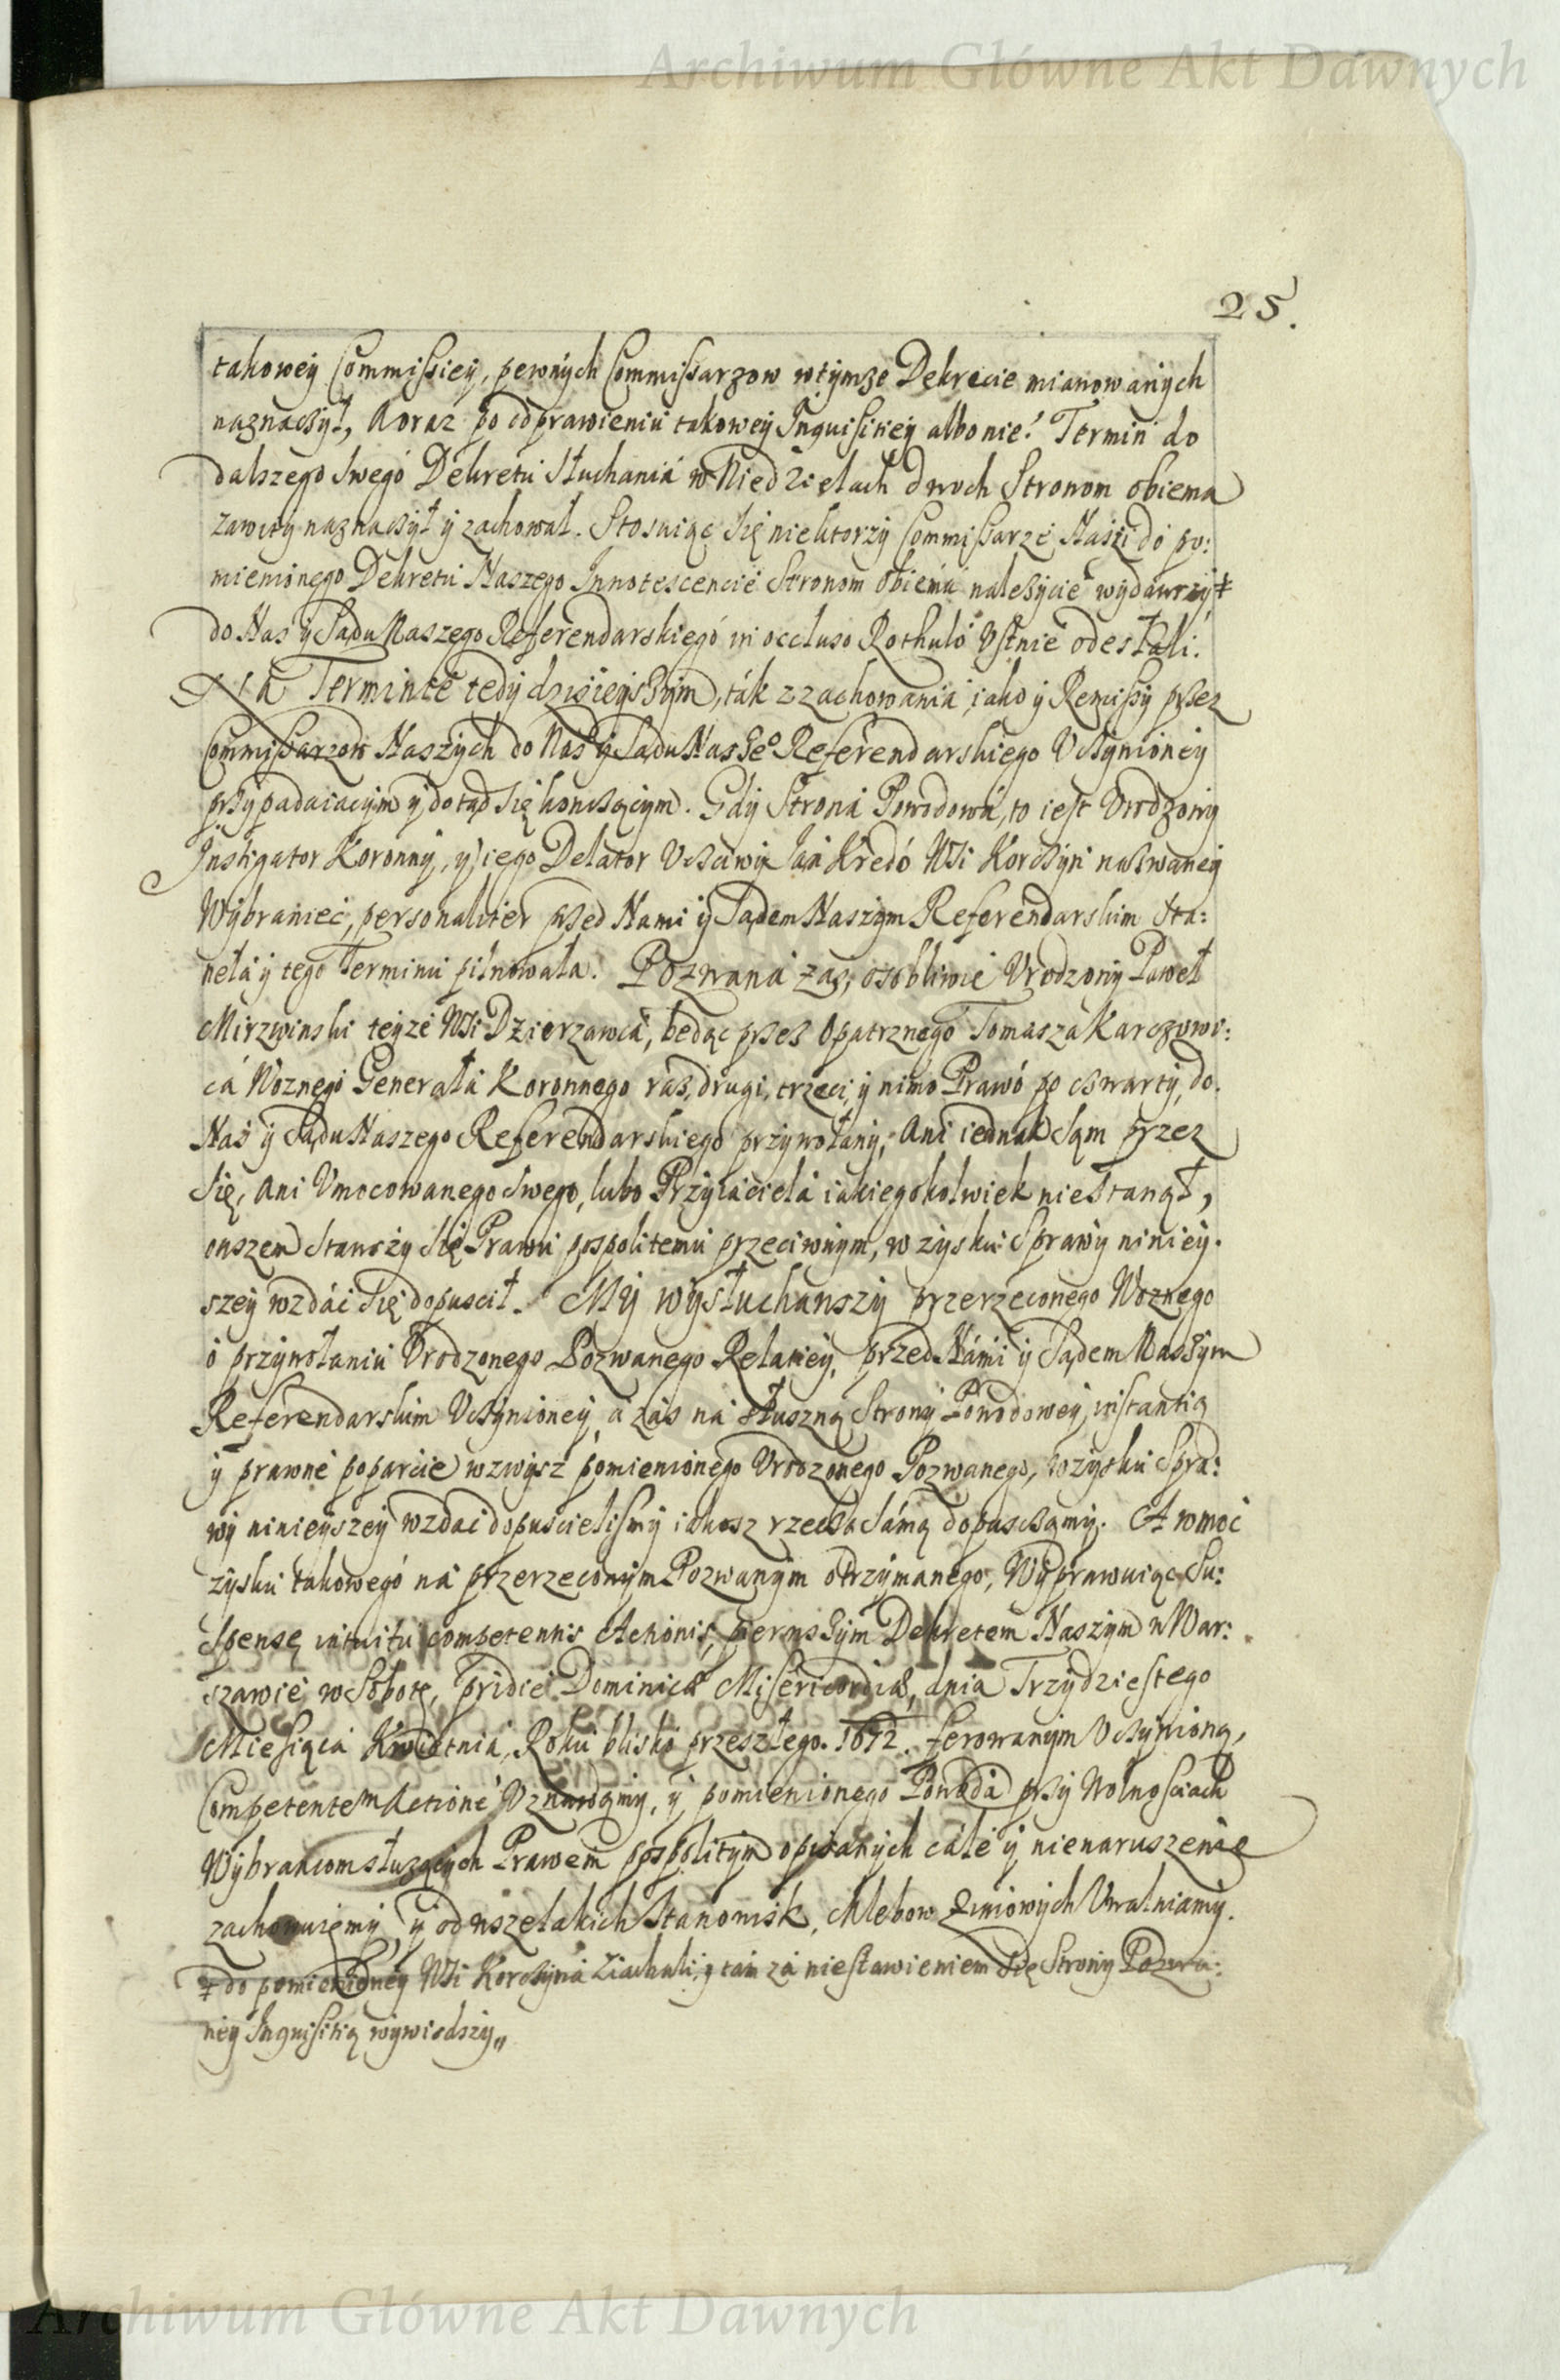 Archiwum Główne Akt Dawnych
25.
takowey Commissiey, pewnych Commissarzow w tymze Dekrecie mianowanych
naznaczył, A oraz po odprawieniu takowey Inquisitiey albo nie! Termin do
dalszego swego Dekretu słuchania w Niedzielach dwuch Stronom obiema
zawity naznaczył y zachował. Stosuiąc się niektorzy Commissarze Naszi do po:
mienionego Dekretu Naszego Innotescencie Stronom obiema należycie wydawrzy ŧ
do Nas y Sądu Naszego Referendarskiego in occluso Rothulo Ustnie odesłali.
Na Terminie tedy dzisieyszym, ták z zachowania iako y Remissy przez
Commissarzow Naszych do Nas y Sądu Nasze° Referendarskiego Uczynioney
przypadaiącym y dotąd się konczącym. Gdy Strona Powodowa, to iest Urodzony
Instigator Koronny, y iego Delator Uczciwy Jan Kredo Wsi Korczyn nazwaney
Wybraniec, personaliter przed Nami y Sądem Naszym Referendarskim sta:
neła y tego Terminu pilnowała. Pozwana zas, osobliwie Urodzony Paweł
Mirzwinski teyze Wsi Dzierzawca, bedąc przez Opatrznego Tomasza Karczowi:
ca Woznego Generała Koronnego raz, drugi, trzeci, y nimo Prawo po czwarty, do
Nas y Sądu Naszego Referendarskiego przywołany, Ani iednak sąm przez
się, Ani Umocowanego swego, lubo Przyiaciela iakiegokolwiek nie stanął,
owszem stawszy się Prawu pospolitemu przeciwnym, w zysku Sprawy niniey:
szey wzdáć się dopuscił. My wysłuchawszy przerzeconego Woznego
o przywołaniu Urodzonego Pozwanego Relatiey, przed Námi y Sądem Naszym
Referendarskim Uczynioney, a zás na słuszną Strony Powodowey instantią
y prawne poparcie wzwysz pomienionego Urodzonego Pozwanego, w zysku Spra:
wy ninieyszey wzdać dopuscielismy iakosz rzeczą sámą dopusczamy. A w moc
zysku takowego na przerzeconym Pozwanym otrzymanego, Wyprawuiąc Su:
spensę intuitu competentis Actionis, pierwszym Dekretem Naszym w War:
szawie w Sobotę, pridie Dominicæ Misericordiæ, dnia Trzydziestego
Miesiąca Kwietnia, Roku blisko przeszłego. 1672. ferowanym Uczynioną,
Competentem Actione Uznawamy, y pomienionego Powoda przy Wolnosciach
Wybrancom słuzących Prawem pospolitym opisanych całe y nienaruszenie
zachowuiemy, y od wszelakich Stanowisk, Chlebow Zimowych Uwalniamy.
ŧ do pomienioney Wsi Korczyna ziachali, y tam za niestawieniem się Strony Pozwa:
ney Inquisitią wywiodszy,,
Archiwum Główne Akt Dawnych